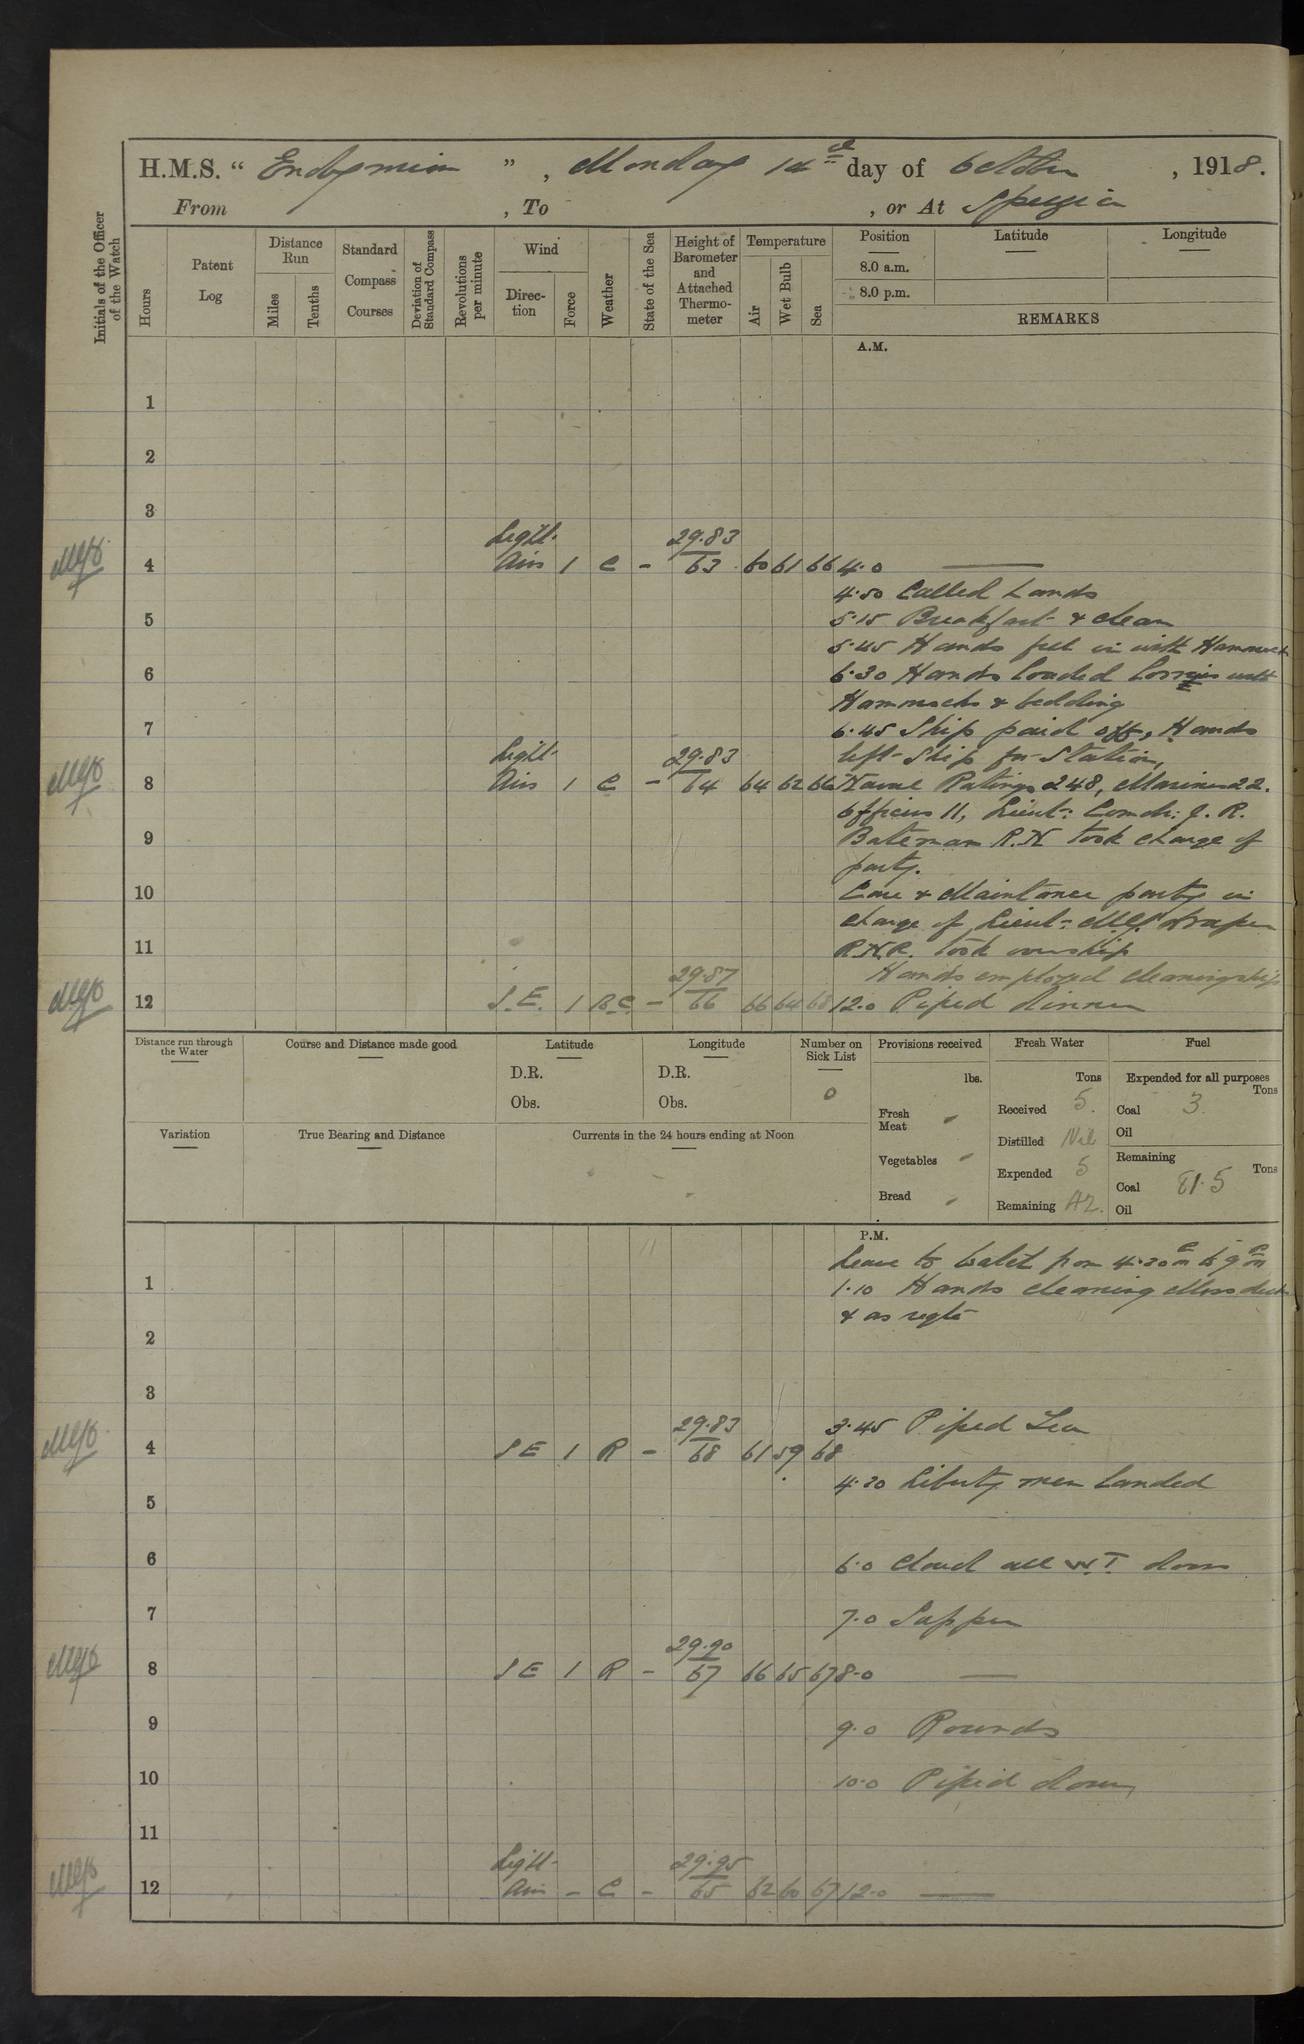 H.M.S. “ Endymion ” , Monday 14th day of October , 1918.
From , To , or At Spezia
Initials of the Officer of the Watch
Hours
Patent Log
Distance Run
Miles
Tenths
Standard Compass Courses
Deviation of Standard Compass
Revolutions per minute
Wind
Direction
Force
Weather
State of the Sea
Height of Barometer and Attached Thermometer
Temperature
Air
Wet Bulb
Sea
Position Latitude Longitude
8.0 a.m.
8.0 p.m.
REMARKS
A.M.
1
2
3
Light 29.83
4 Airs 1 C - 63 60 61 66 4.0 —
4.50 Called hands
5 5.15 Breakfast & clean
5.45 Hands fell in with Hammocks
6 6.30 Hands loaded Lorries with
Hammocks & bedding
7 6.45 Ship paid off, Hands
Light 29.83 left Ship for Station,
8 Airs 1 C - 64 64 62 66 Naval Ratings 248, Marines 22.
Officers 11, Lieut: Comdr: J. R.
9 Bateman R.N took charge of
party.
10 Care & Maintance party in
charge of Lieut: Draper
11 R.N.R. took over ship
29.87 Hands employed cleaning ship
12 S.E. 1 B.C. - 66 66 64 68 12.0 Piped dinner
Distance run through the Water
Course and Distance made good
Latitude
D.R.
Obs.
Longitude
D.R.
Obs.
Number on Sick List
0
Provisions received
lbs.
Fresh Meat "
Vegetables "
Bread "
Fresh Water
Tons
Received 5.
Distilled Nil
Expended 5
Remaining 42.
Fuel
Expended for all purposes
Tons
Coal 3
Oil
Remaining
Tons
Coal 81.5
Oil
Variation
True Bearing and Distance
Currents in the 24 hours ending at Noon
P.M.
Leave to watch from 4.30 pm to 9 pm
1 1.10 Hands cleaning Mess decks
& as reqte
2
3
29.83 3.45 Piped Tea
4 S E 1 R - 68 61 59 68
4.30 Liberty men landed
5
6 6.0 Closed all W.T. doors
7 7.0 Supper
29.90
8 S E 1 R - 67 66 65 67 8.0 —
9 9.0 Rounds
10 10.0 Piped down,
11
Light 29.95
12 Airs - C - 65 62 60 67 12.0 —